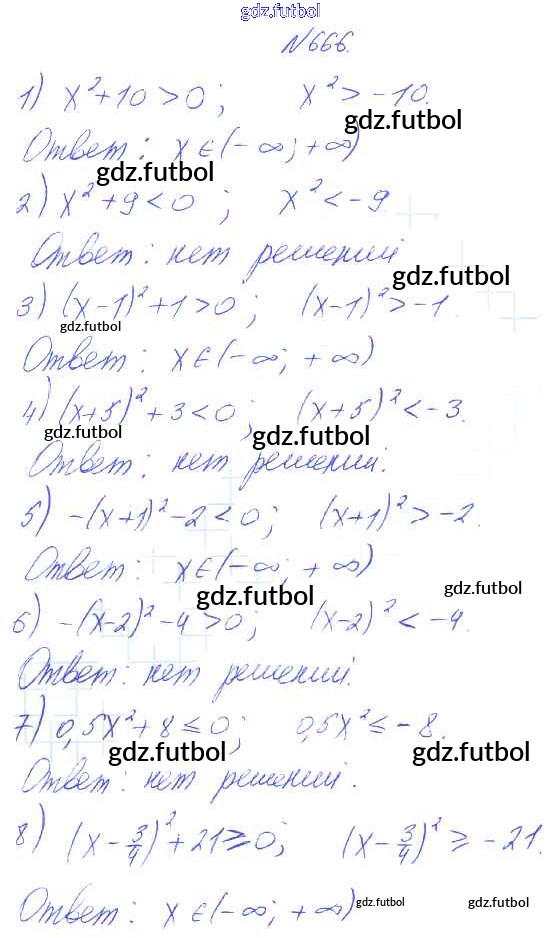 gdz.futbol
№666.
1) x²+10>0; x²>-10.
gdz.futbol
Ответ: x∈(-∞; +∞)
gdz.futbol
2) x²+9<0; x²<-9
Ответ: нет решений
gdz.futbol
3) (x-1)²+1>0; (x-1)²>-1.
gdz.futbol
Ответ: x∈(-∞; +∞)
4) (x+5)²+3<0; (x+5)²<-3.
gdz.futbol gdz.futbol
Ответ: нет решений.
5) -(x+1)²-2<0; (x+1)²>-2.
Ответ: x∈(-∞; +∞)
gdz.futbol gdz.futbol
6) -(x-2)²-4>0; (x-2)²<-4.
Ответ: нет решений.
7) 0,5x²+8≤0; 0,5x²≤-8.
gdz.futbol gdz.futbol
Ответ: нет решений.
8) (x-3/4)²+21≥0; (x-3/4)²≥-21.
Ответ: x∈(-∞; +∞)
gdz.futbol gdz.futbol